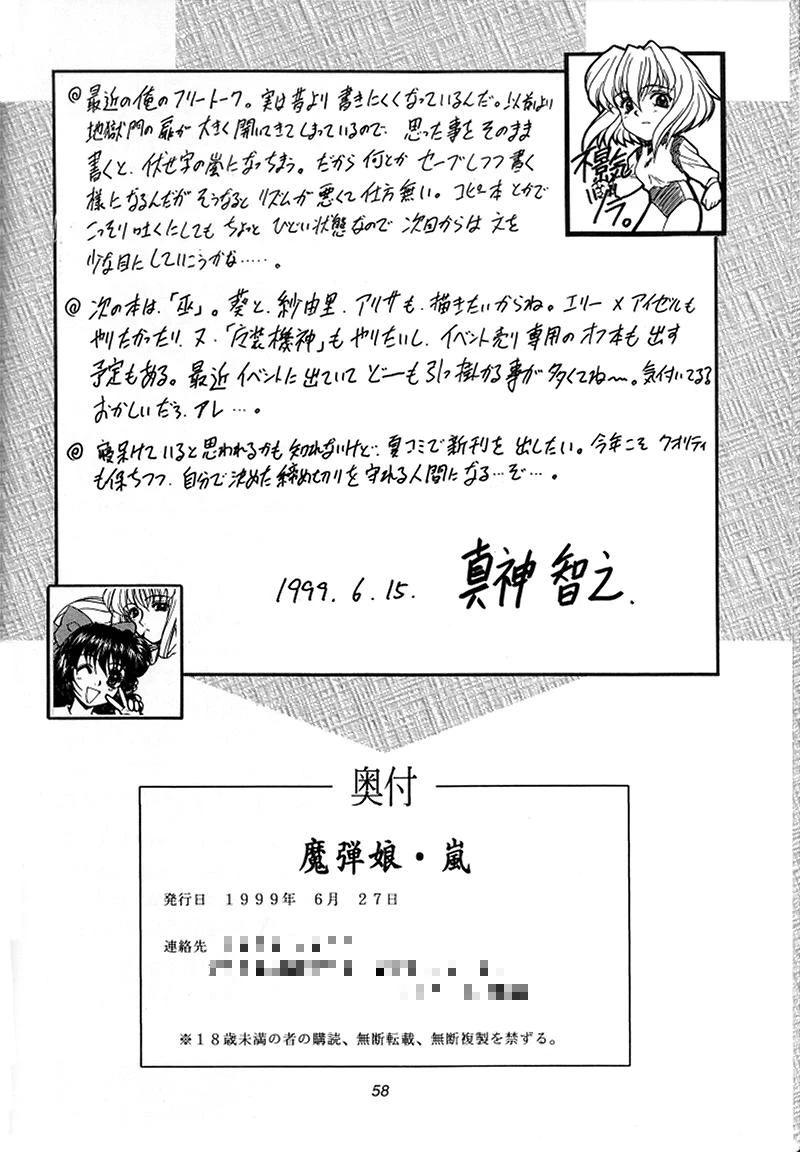 @ 最近の俺のフリートーク。実は昔より書きにくくなっているんだ。以前より
地獄門の扉が大きく開いてきてしまっているので、思った事をそのまま
書くと、伏せ字の嵐になっちまう。だから何とかセーブしつつ書く
様になるんだがそうなるとリズムが悪くて仕方無い。コピー本とかで
こっそり吐くにしてもちょっとひどい状態なので次回からは文を
少な目にしていこうかな……。
@ 次の本は、「巫」。葵と、紗由里、アリサも、描きたいからね。エリー×アイゼルも
やりたかったり、又、「厄装機神」もやりたいし、イベント売り専用のオフ本も出す
予定もある。最近イベントに出ていてどーも引っ掛かる事が多くてね〜。気付いてる?
おかしいだろ、アレ…。
@ 寝呆けていると思われるかも知れないけど、夏コミで新刊を出したい。今年こそクオリティ
も保ちつつ、自分で決めた締め切りを守れる人間になる…ぞ…。
1999.6.15. 真神 智之.
奥付
魔弾娘・嵐
発行日 1999年 6月 27日
連絡先
※18歳未満の者の購読、無断転載、無断複製を禁ずる。
58